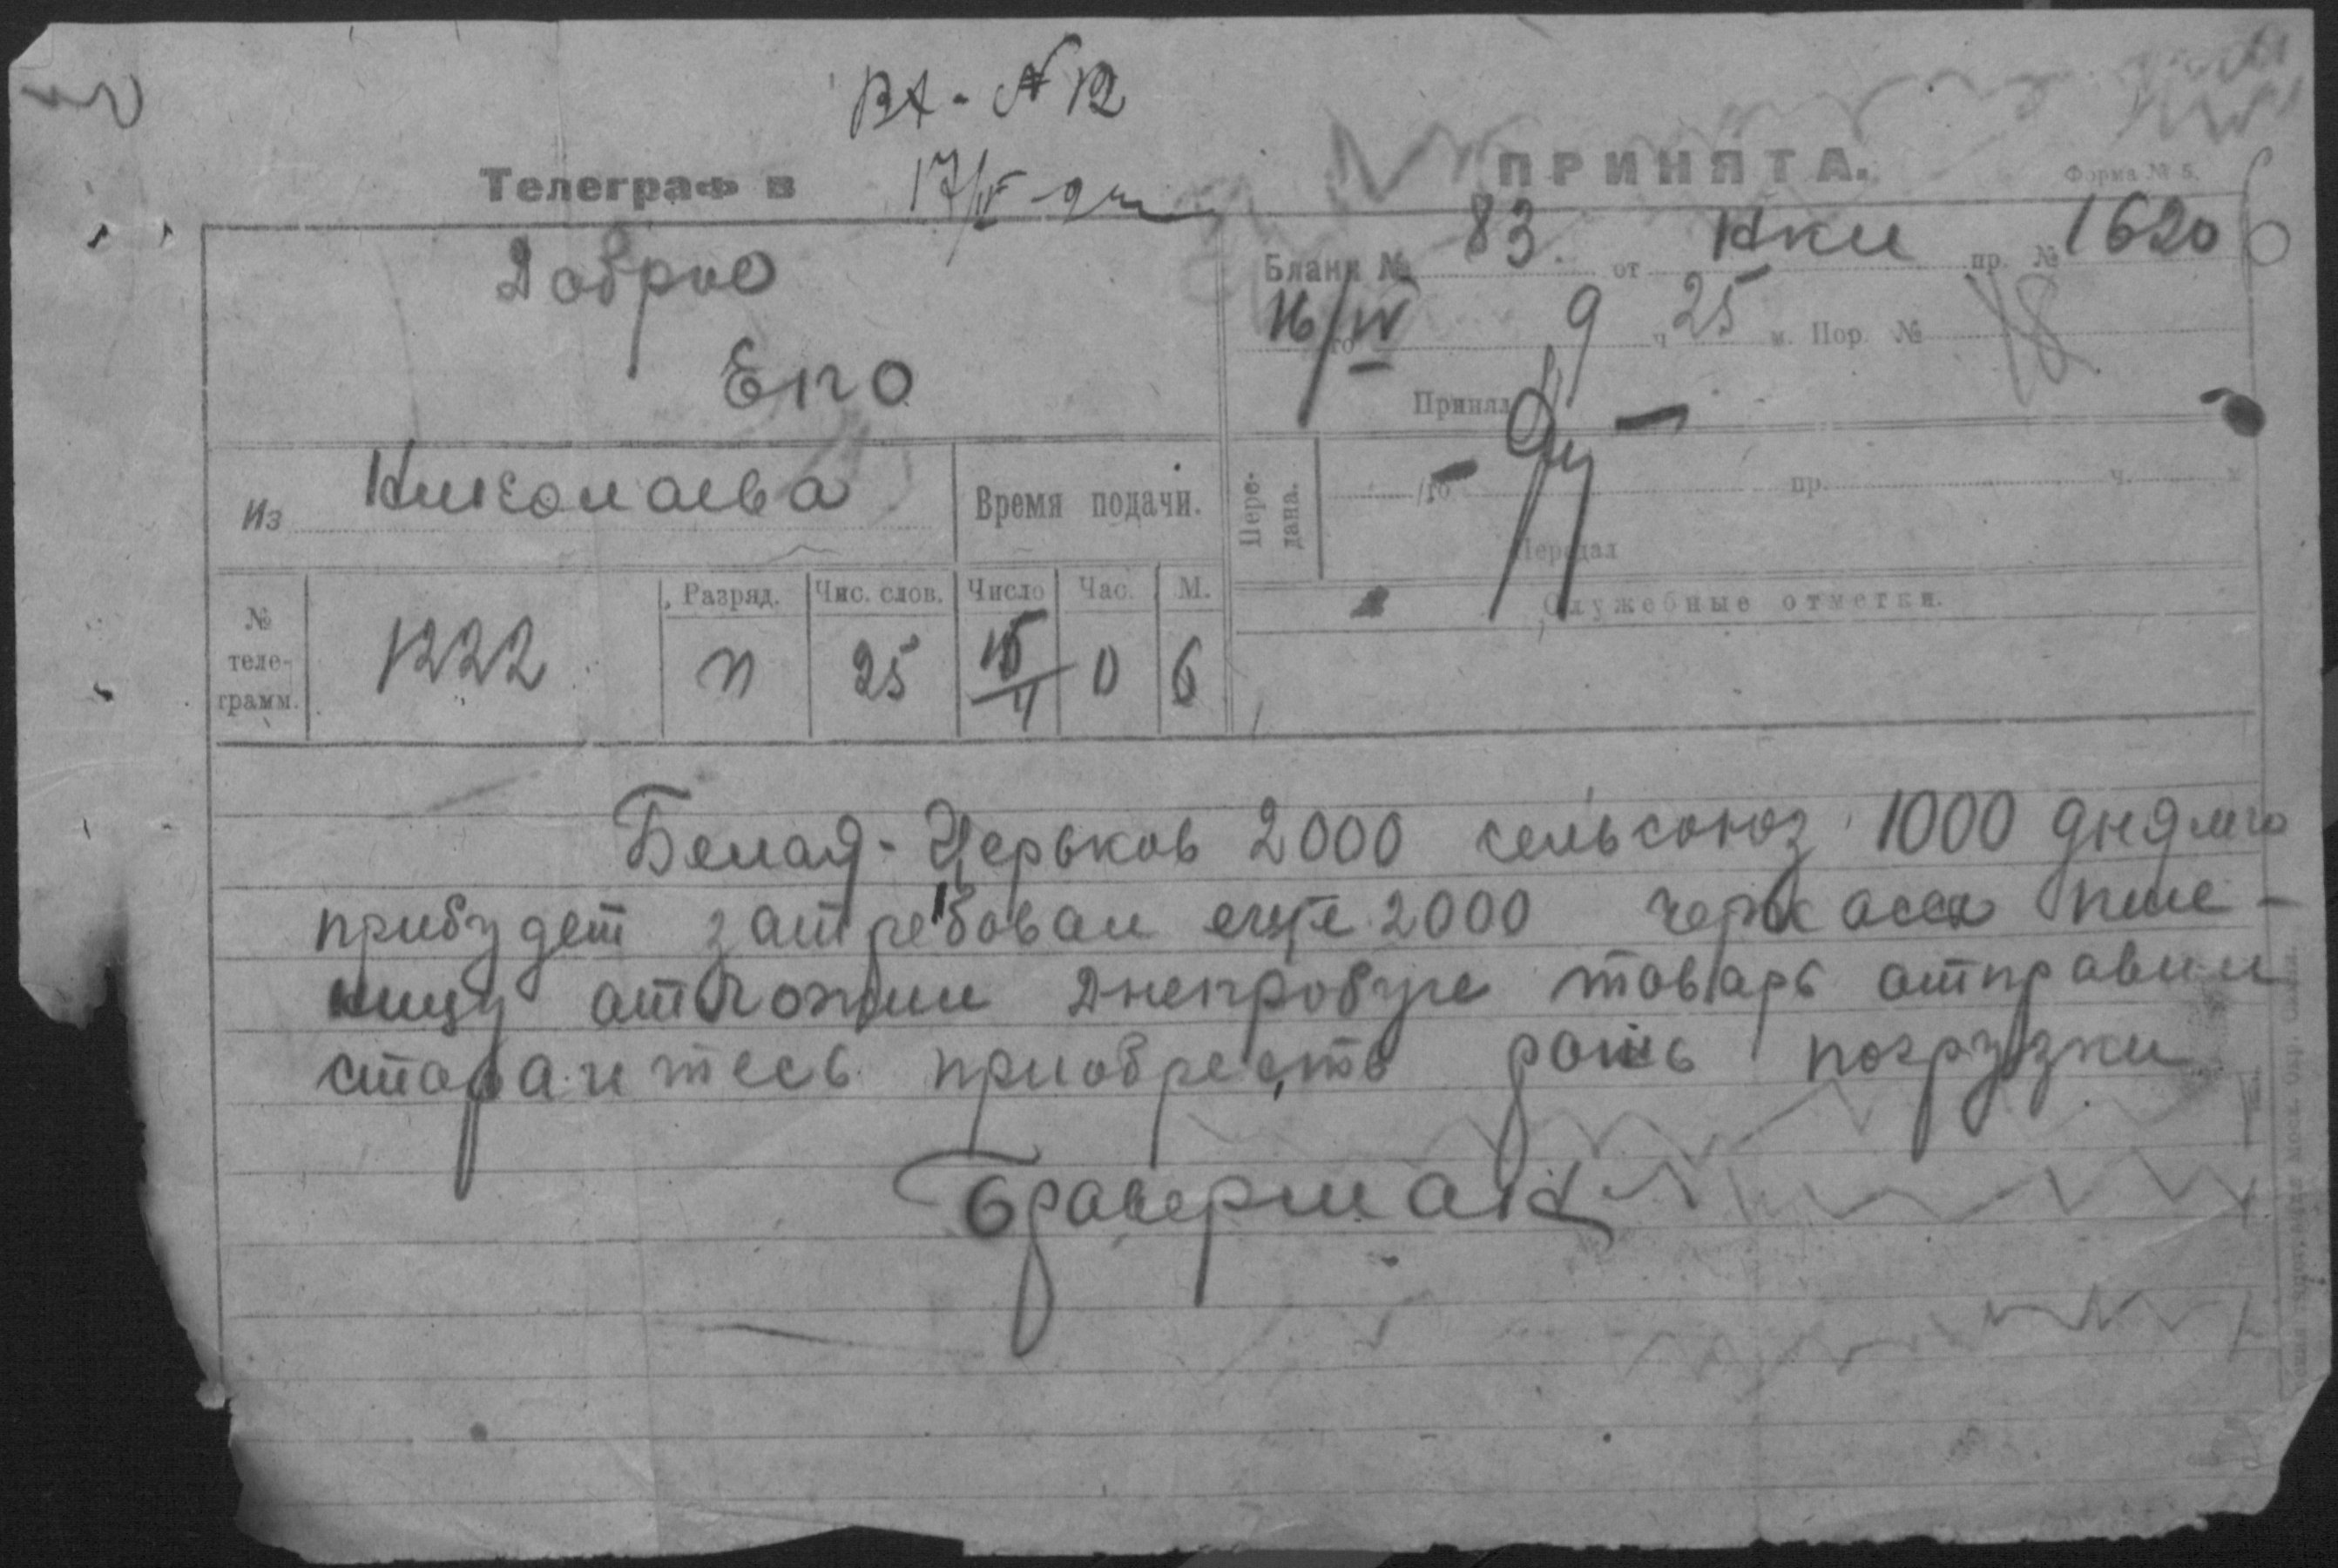 Вх - № 12
Телеграф в 17/IV
ПРИНЯТА.
Форма № 5.
Доброе
Епо
Бланк № 83. от Нки пр. № 1620
16/IV го 9 ч 25 м. Пор. № 18
Принял
Из Николаева
Время подачи.
Пере-
дана.
/го пр. ч.
Передал
№
теле-
грамм.
1222
Разряд.
Чис. слов.
Число
Час.
М.
Служебные отметки.
п 25 15/4 0 6
Белая-Церьков 2000 сельсоюз 1000 днями
прибудет затребован еще 2000 пше-
ницу отложили Днепробуге товарь отправили
старайтесь приобресть рожь погрузки
Браверман